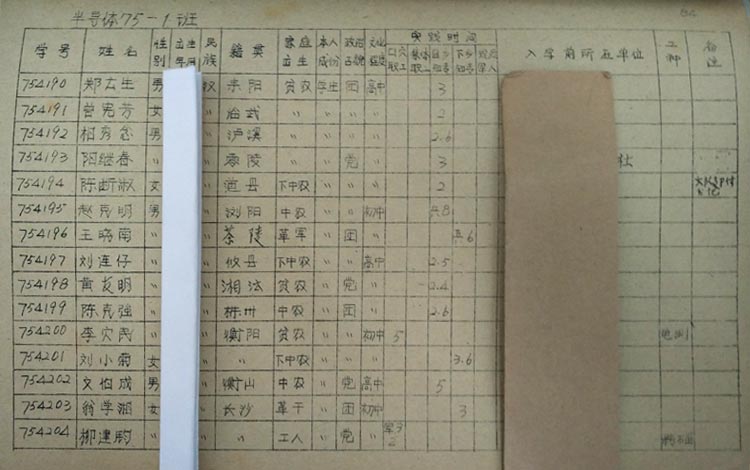 半导体75-1班
学号 姓名 性别 出生年月 民族 籍贯 家庭出生 本人成份 政治 文化程度 实践时间 入学前所在单位 工种 备注
754190 郑太生 男 汉 耒阳 贫农 学生 团 高中 3
754191 曾宪芳 女 〃 临武 〃 〃 〃 〃 2
754192 相秀 男 〃 泸溪 〃 〃 〃 〃 2.6
754193 阳继春 〃 〃 零陵 〃 〃 党 〃 3 社
754194 陈断淑 女 〃 道县 下中农 〃 〃 〃 2
754195 赵克明 男 〃 浏阳 中农 〃 〃 初中
754196 王晓南 〃 〃 茶陵 革军 〃 团 〃
754197 刘连仔 〃 〃 攸县 下中农 〃 〃 高中 2.5
754198 黄友明 〃 〃 湘 贫农 〃 党 〃 2.4
754199 陈克强 〃 〃 株州 中农 〃 团 〃 2.6
754200 李灾民 〃 〃 衡阳 贫农 〃 〃 初中 5
754201 刘小菊 女 〃 〃 下中农 〃 〃 〃 3.6
754202 文伯成 男 〃 衡山 中农 〃 党 高中 5
754203 翁学湘 女 〃 长沙 革干 〃 团 初中 3
754204 柳建 〃 〃 〃 工人 〃 党 〃